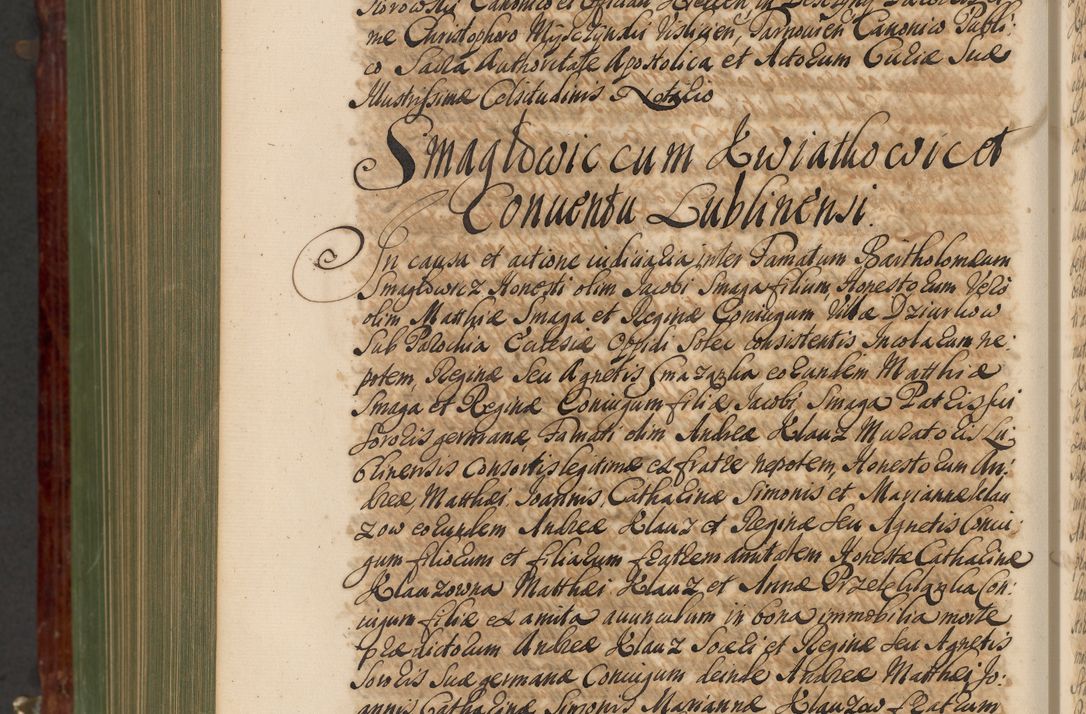 me Christophoro Mysczyndii Vislicen, Tarnovien Canonico Publi:
co Sacra Authoritate Apostolica et Actorum Curiæ Suæ
Illustrissimæ Celsitudinis Notario
Smagłowic cum Kwiathowic et
Conventu Lublinensi.
In causa et actione iudiciaria inter Famatum Bartholomæum
Smagłowicz Honesti olim Jacobi Smaga filium, Honestorum Vero
olim Matthiæ Smaga et Reginæ Coniugum Villæ Dziurkow
Sub Parochia Ecclesiæ Oppidi Solec consistentis Incolarum ne:
potem, Reginæ Seu Agnetis Smazanka eorundem Matthiæ
Smaga et Reginæ Coniugum filiæ, Jacobi Smaga Patris sui
Sororis germanæ, Famati olim Andreæ Klauz Muratoris Lu
blinensis Consortis legitimæ ex fratre nepotem, Honestorum An:
dreæ, Matthæi, Joannis, Catharinæ Simonis et Mariannæ Klau
zow eorundem Andreæ Klauz et Reginæ Seu Agnetis Coniu
gum filiorum et filiarum fratrem amitatem Honestæ Catharinæ
Klauzowna Matthæi Klauz et Annæ Con:
iugum filiæ ex amita avunculum in bona immobilia morte
prædictorum Andreæ Klauz Soceri et Reginæ Seu Agnetis
Sororis Suæ germanæ Coniugum deinde Andreæ Matthæi Jo:
annis Catharinæ Simonis Mariannæ Klauzow fratrum